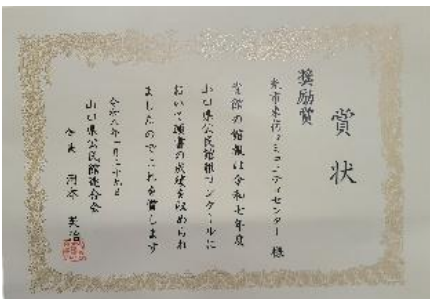 賞状
奨励賞
光市束荷コミュニティセンター 様
貴館の館報は令和七年度
山口県公民館報コンクールに
おいて頭書の成績を収められ
ましたのでこれを賞します
令和八年一月二十六日
山口県公民館連合会
会長